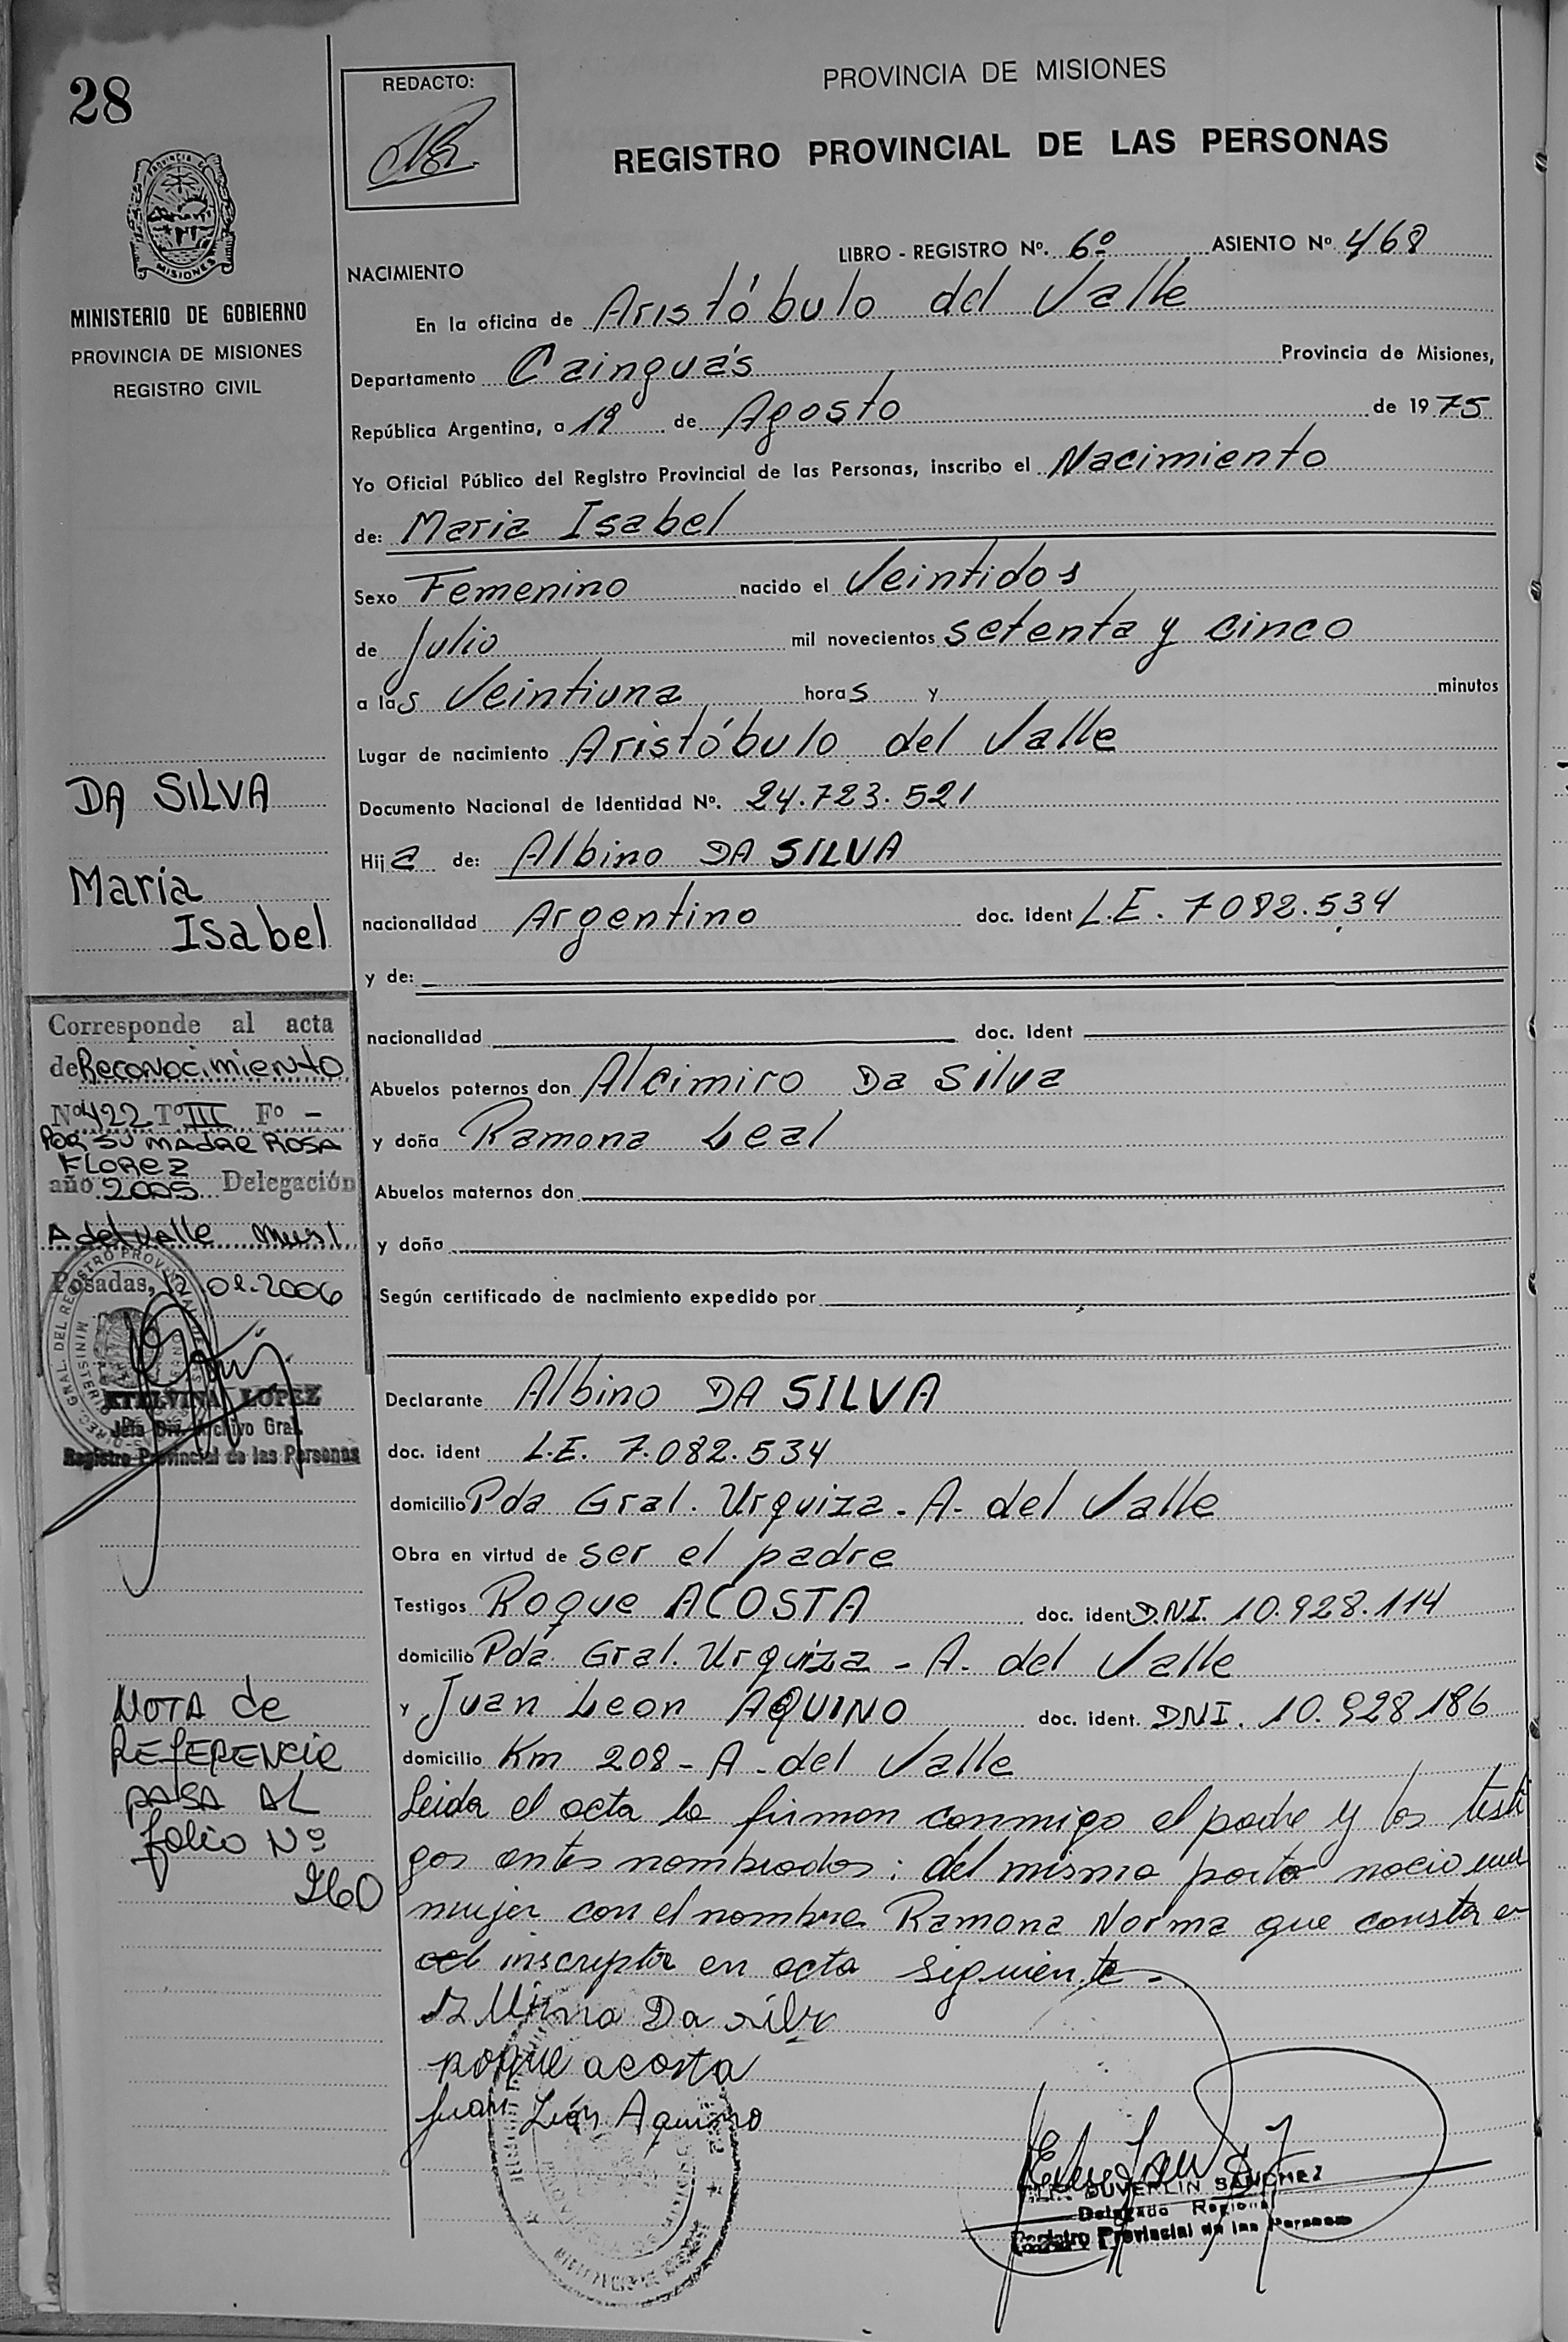 28
REDACTO:
PROVINCIA DE MISIONES
REGISTRO PROVINCIAL DE LAS PERSONAS
MISIONES
MINISTERIO DE GOBIERNO
PROVINCIA DE MISIONES
REGISTRO CIVIL
LIBRO - REGISTRO Nº. 6º ASIENTO Nº 468
NACIMIENTO
En la oficina de Aristóbulo del Valle
Departamento Cainguás Provincia de Misiones,
República Argentina, a 19 de Agosto de 1975
Yo Oficial Público del Registro Provincial de las Personas, inscribo el Nacimiento
de: Maria Isabel
Sexo Femenino nacido el Veintidos
de Julio mil novecientos setenta y cinco
a las Veintiuna horas y minutos
Lugar de nacimiento Aristóbulo del Valle
Documento Nacional de Identidad Nº. 24.723.521
Hija de: Albino DA SILVA
nacionalidad Argentino doc. ident L.E. 7082.534
y de:
nacionalidad doc. ident
Abuelos paternos don Alcimiro Da Silva
y doña Ramona Leal
Abuelos maternos don
y doña
Según certificado de nacimiento expedido por
Declarante Albino DA SILVA
doc. ident L.E. 7.082.534
domicilio Pda Gral. Urquiza - A. del Valle
Obra en virtud de ser el padre
Testigos Roque ACOSTA doc. ident D.N.I. 10.928.114
domicilio Pda. Gral. Urquiza - A. del Valle
y Juan Leon AQUINO doc. ident. DNI. 10.928186
domicilio Km 208 - A. del Valle
Leida el acta la firman conmigo el padre y los testi
gos antes nombrados: del mismo parto nacio una
mujer con el nombre Ramona Norma que consta en
inscripta en acta siguiente.
Da Silva
Roque acosta
Juan León Aquino
DUVERLIN SANCHEZ
Delegado Regional
Registro Provincial de las Personas
DA SILVA
Maria
Isabel
Corresponde al acta
de Reconocimiento
Nº 422 Tº III Fº -
POR SU MADRE ROSA
FLOREZ
año 2005 Delegación
A del Valle Mnes
Posadas, 12.02.2006
ETELVINA LOPEZ
Jefa Div. Archivo Gral.
Registro Provincial de las Personas
NOTA de
REFERENCIA
PASA AL
folio Nº
260